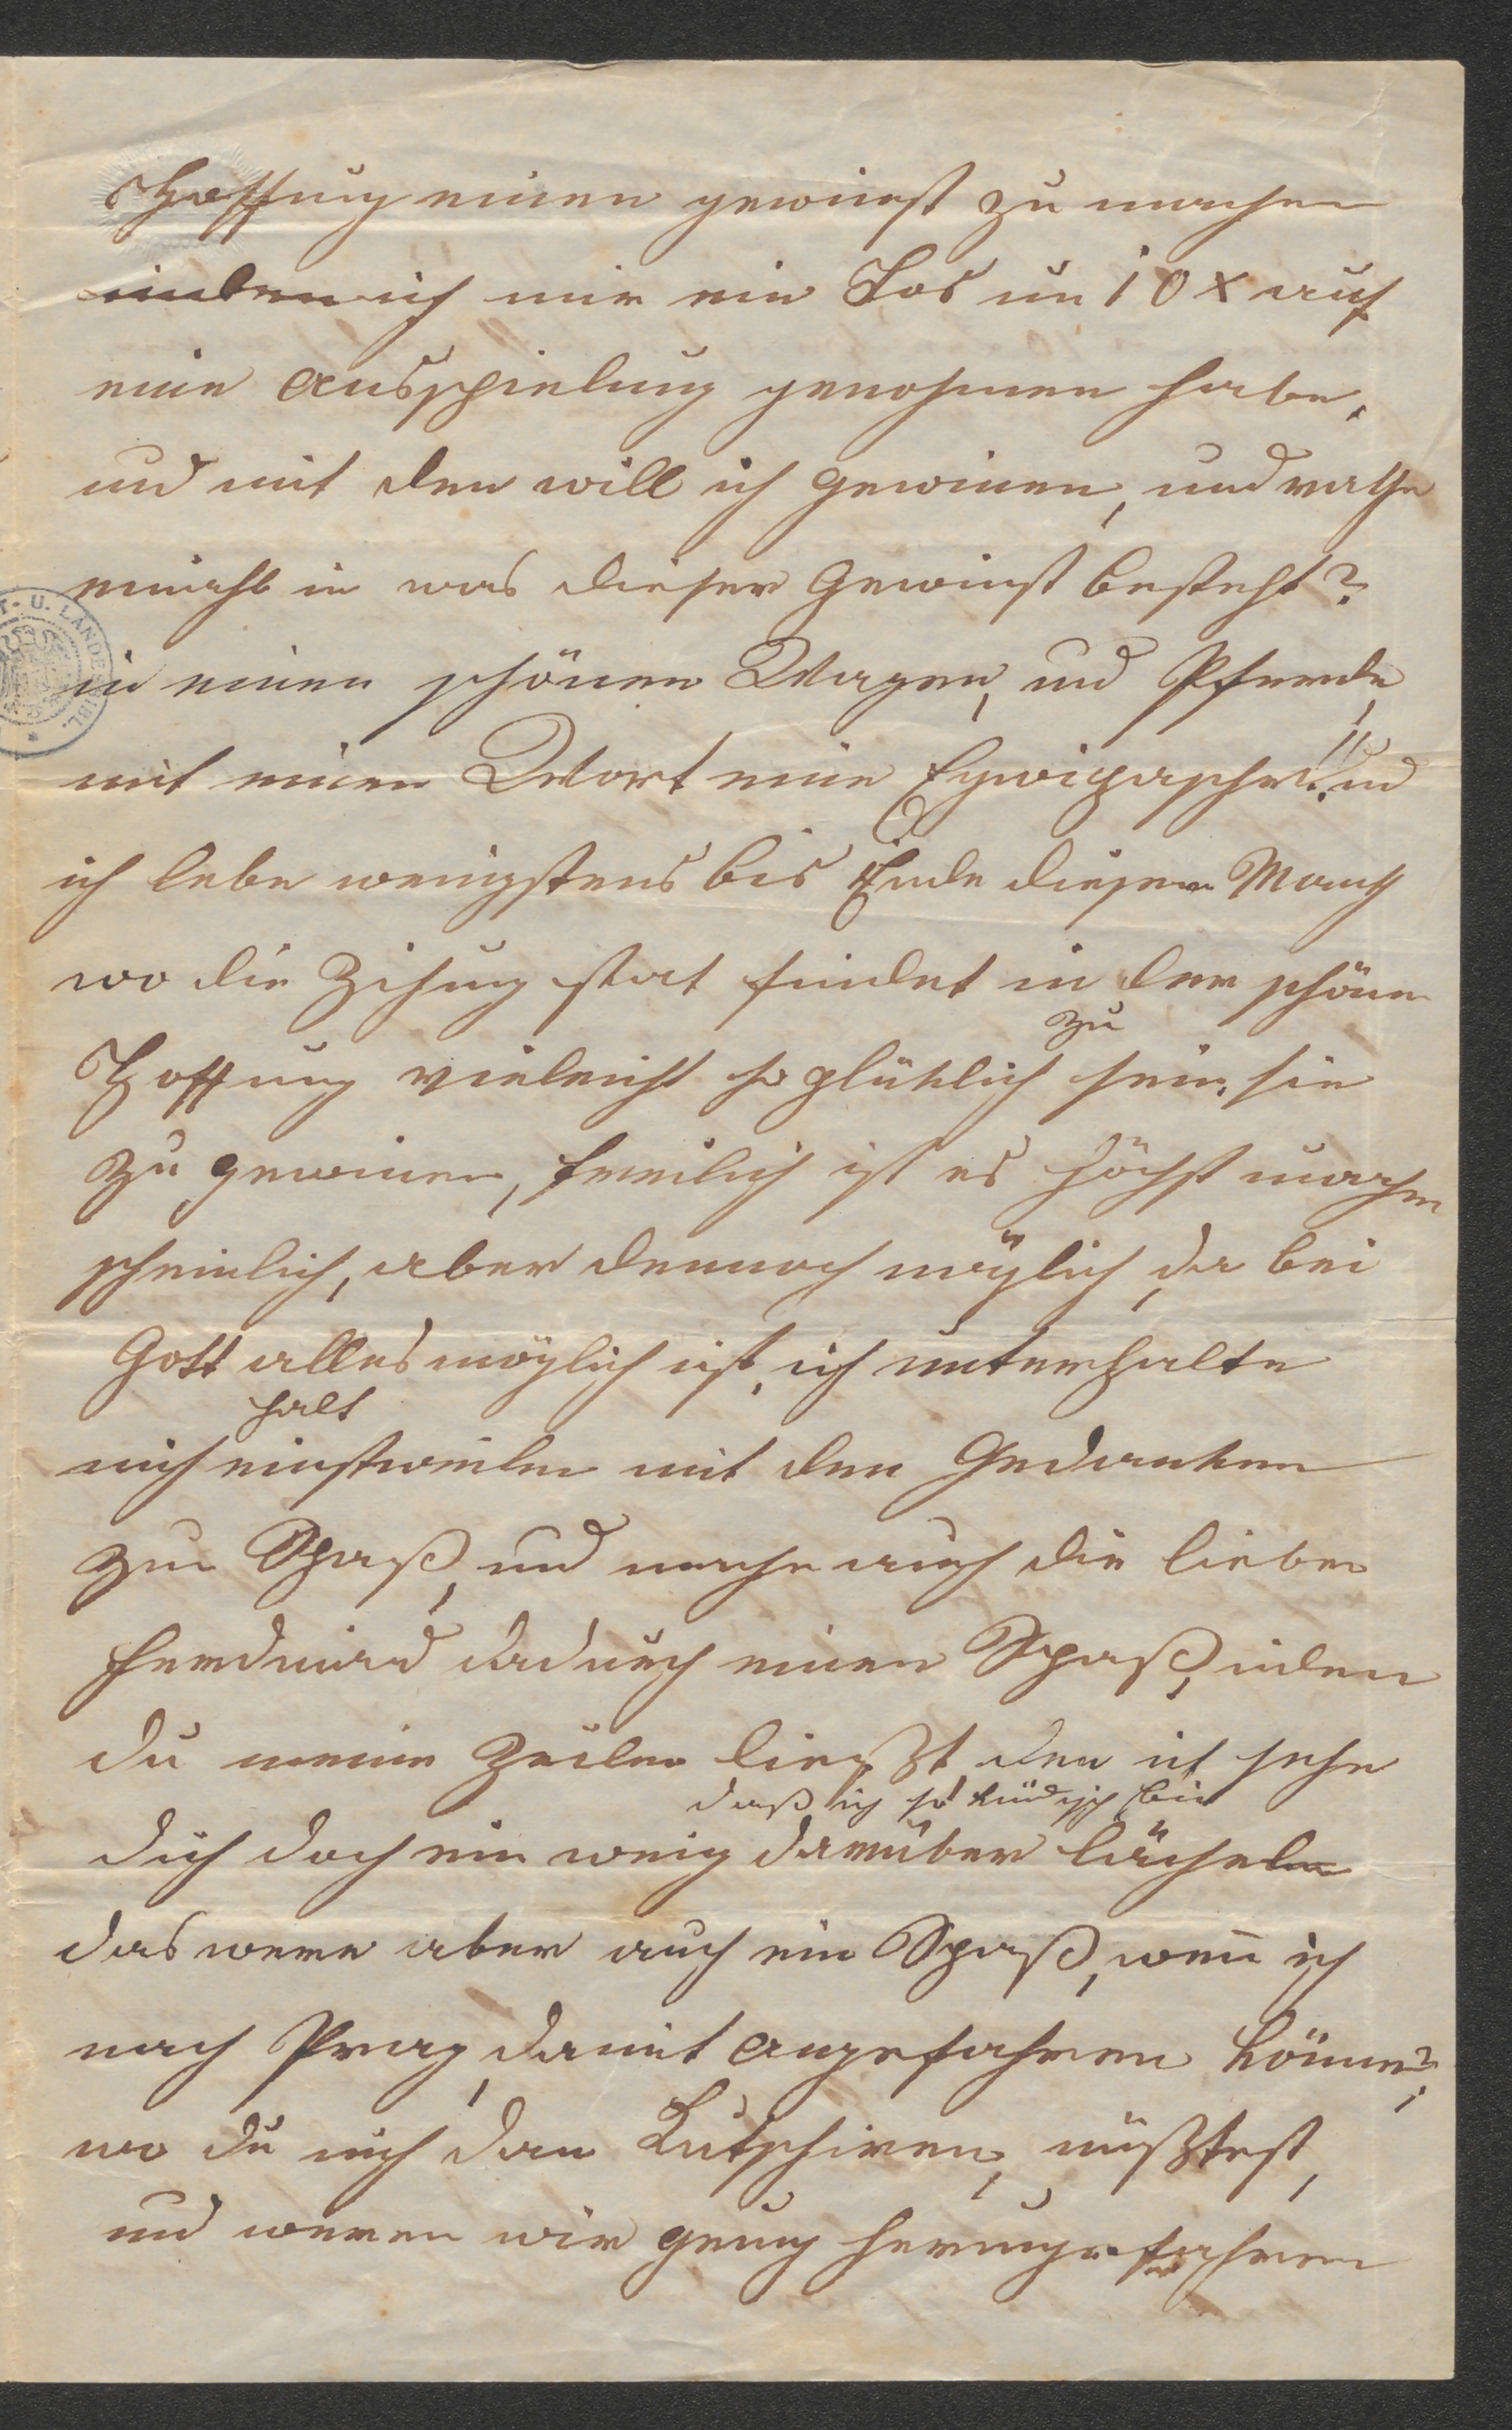 Hoffnung einen gewinst zu machen
indem ich mir ein Los um 10 x auf
eine Ausspielung genohmen habe,
und mit den will ich gewinen, und rathe
einmahl in was dieser Gewinst besteht?
in einen schönen Wagen, und Pferde,
mit einen Wort eine Eqwipasche!!! und
ich lebe wenigstens bis Ende dieser Month
wo die Zihung stat findet in der schönen
Hoffnung vieleicht so glüklich zu sein, sie
zu gewinen, freilich ist es höchst unwahr
scheinlich, aber dennoch möglich, da bei
Gott alles möglich ist, ich unterhalte
mich halt einstweilen mit den Gedanken
zum Spaß, und mache auch dir lieber
Ferdinand dadurch einen Spaß, indem
du meine Zeilen liest, den ich sehe
daß ich so kindisch bin
dich doch ein wenig darüber lächeln
das were aber auch ein Spaß, wen̄ ich
nach Prag, damit angefahren köme?,
wo du mich dan Kutschiren, müßtest,
und weren wir genug herumgefahren
T. U. LANDE
BIBL.